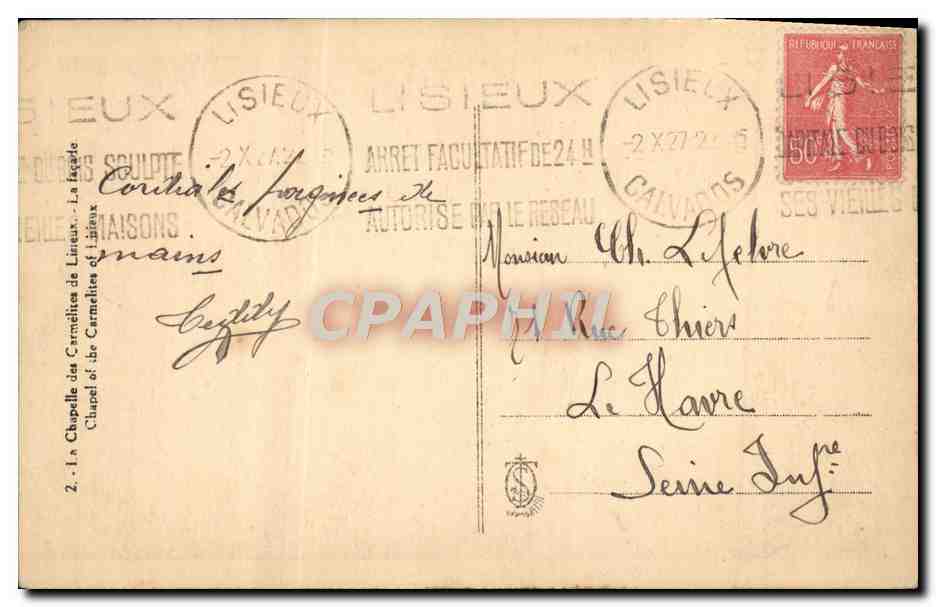 LISIEUX
DU BOIS SCULPTE
VIEILLES MAISONS
LISIEUX
-2.X.27
CALVADOS
LISIEUX
ARRET FACULTATIF DE 24 H
AUTORISE PAR LE RESEAU
LISIEUX
-2.X.27
CALVADOS
REPUBLIQUE FRANÇAISE
50
CAPITALE DU BOIS
SES VIEILLES
Cordiales poignées de
mains
Monsieur Ch. Lefebvre
71 Rue Thiers
Le Havre
Seine Infre
CPAPHIL
2. - La Chapelle des Carmélites de Lisieux. - La façade
Chapel of the Carmelites of Lisieux